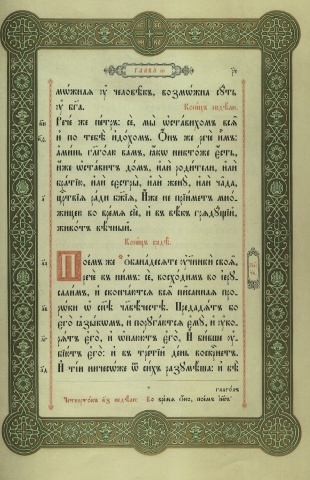 ГЛАВА
мѡ́жнаѧ ᲂу҆ человѣ̑къ, возмѡ́жна сꙋ́ть
ᲂу҆ бг҃а. Коне́цъ недѣ́ли.
Рече́ же пе́тръ: сѐ, мы̀ ѡ҆ста́вихомъ всѧ̑
и҆ по тебѣ̀ и҆до́хомъ. Ѻ҆́нъ же речѐ и҆̀мъ:
а҆ми́нь глаго́лю ва́мъ, ꙗ҆́кѡ никто́же є҆́сть,
и҆́же ѡ҆ста́витъ до́мъ, и҆лѝ роди́тєли, и҆лѝ
бра́тїю, и҆лѝ сєстры̀, и҆лѝ женꙋ̀, и҆лѝ ча̑да,
црⷭ҇твїѧ ра́ди бж҃їѧ, И҆́же не прїи́метъ мно́-
жицею во вре́мѧ сїѐ, и҆ въ вѣ́къ грѧдꙋ́щїй,
живо́тъ вѣ́чный.
Коне́цъ
Поѧ́мъ же ѻ҆бана́десѧте ᲂу҆ченикѝ своѧ̑,
речѐ къ ни̑мъ: сѐ, восхо́димъ во і҆ерꙋ-
сали́мъ, и҆ сконча́ютсѧ всѧ̑ пи̑саннаѧ про-
рѡ́ки ѡ҆ сн҃ѣ чл҃вѣ́честѣ. Предадѧ́тъ бо
є҆го̀ ꙗ҆зы́кѡмъ, и҆ порꙋга́ютсѧ є҆мꙋ̀, и҆ ᲂу҆ко-
рѧ́тъ є҆го̀, и҆ ѡ҆плюю́тъ є҆го̀, И҆ би́вше ᲂу҆-
бїю́тъ є҆го̀: и҆ въ тре́тїй де́нь воскрⷭ҇нетъ.
И҆ ті́и ничесо́же ѿ си́хъ разꙋмѣ́ша: и҆ бѣ̀
глаго́лъ
Четверто́къ недѣ́ли Во вре́мѧ ѻ҆́но, поѧ́мъ і҆и҃съ